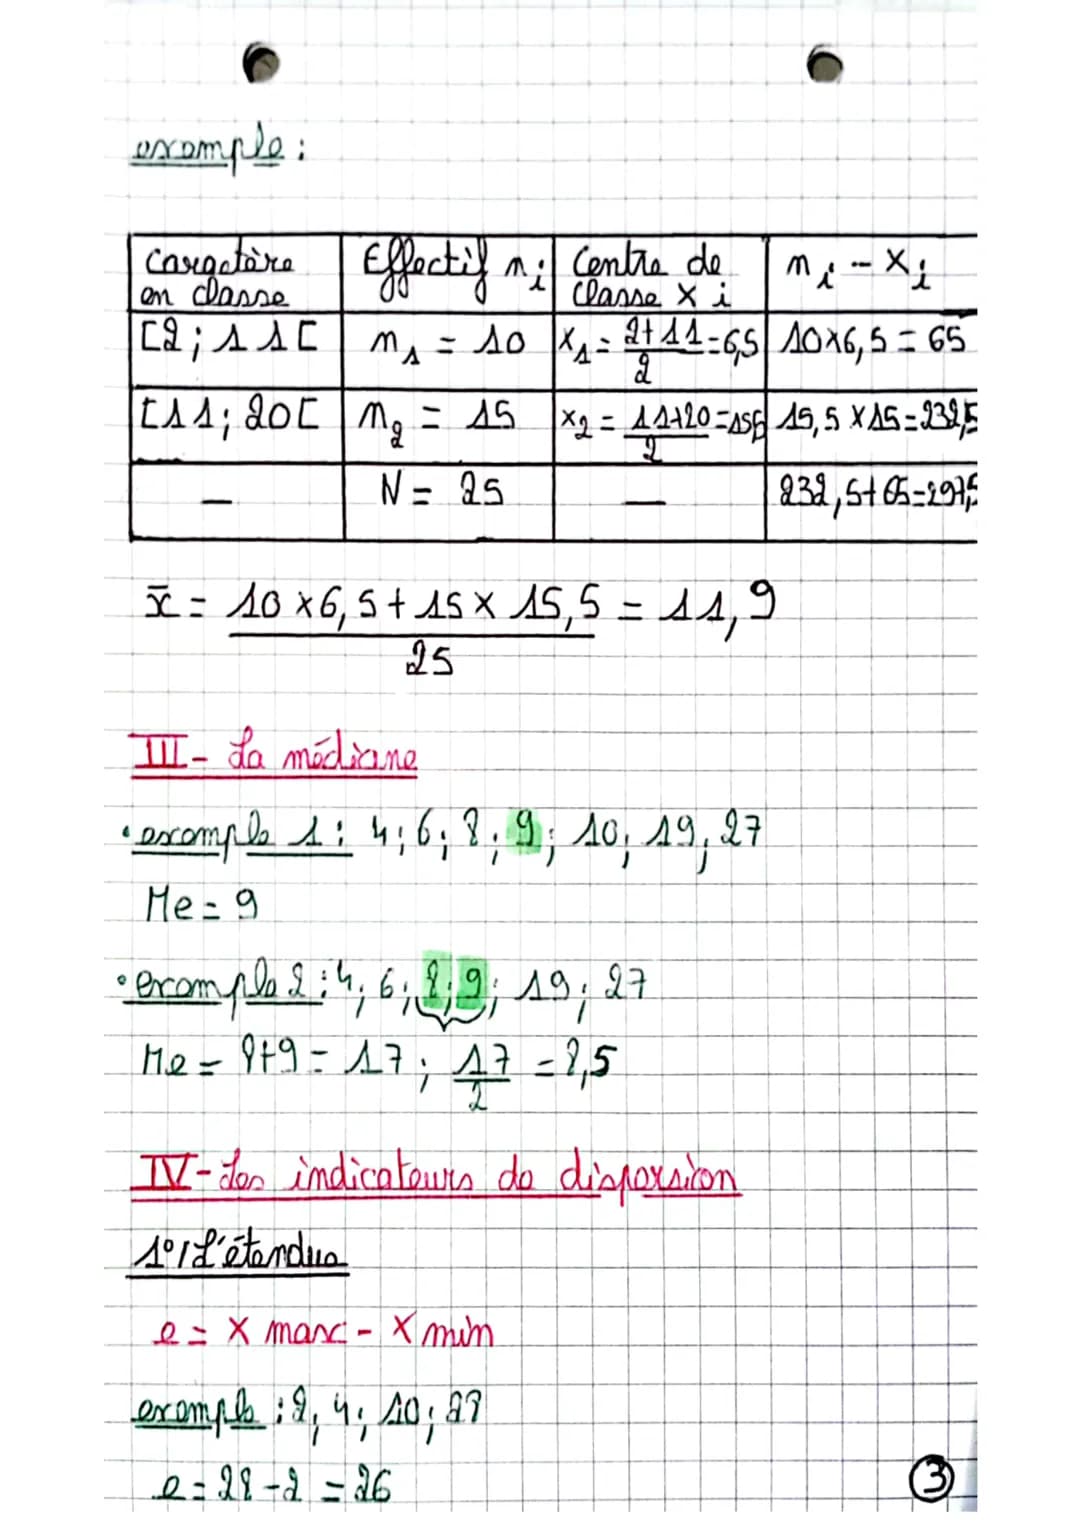 exemple :
Caractère en classe | Effectif ni | Centre de classe x i | ni - xi
[2 ; 11[ | n1 = 10 | x1 = (2+11)/2 = 6,5 | 10×6,5 = 65
[11 ; 20[ | n2 = 15 | x2 = (11+20)/2 = 15,5 | 15,5 × 15 = 232,5
— | N = 25 | — | 232,5 + 65 = 297,5
x̄ = (10 × 6,5 + 15 × 15,5)/25 = 11,9
III - La médiane
• exemple 1 : 4 ; 6 ; 8 ; 9 ; 10 ; 19 ; 27
Me = 9
• exemple 2 : 4 ; 6 ; 8 ; 9 ; 19 ; 27
Me = 8+9 = 17 ; 17/2 = 8,5
IV - Les indicateurs de dispersion
1°/ L'étendue
e = x max - x min
exemple : 2 ; 4 ; 10 ; 28
e = 28 - 2 = 26
3